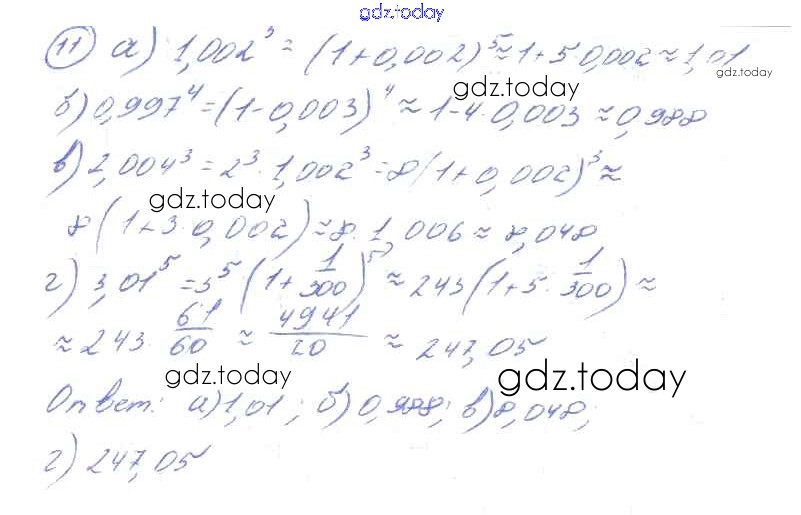 gdz.today
11 а) 1,002³ = (1+0,002)⁵ ≈ 1+5 0,002 ≈ 1,01
gdz.today
gdz.today
б) 0,997⁴ = (1-0,003)⁴ ≈ 1-4·0,003 ≈ 0,988
в) 2,004³ = 2³·1,002³ = 8(1+0,002)³ ≈
gdz.today
gdz.today
8(1+3·0,002) ≈ 8·1,006 ≈ 8,048
г) 3,01⁵ = 3⁵(1+1/300)⁵ ≈ 243(1+5·1/300) ≈
≈ 243·61/60 ≈ 4941/20 ≈ 247,05
gdz.today
gdz.today
Ответ: а) 1,01; б) 0,988; в) 8,048;
г) 247,05